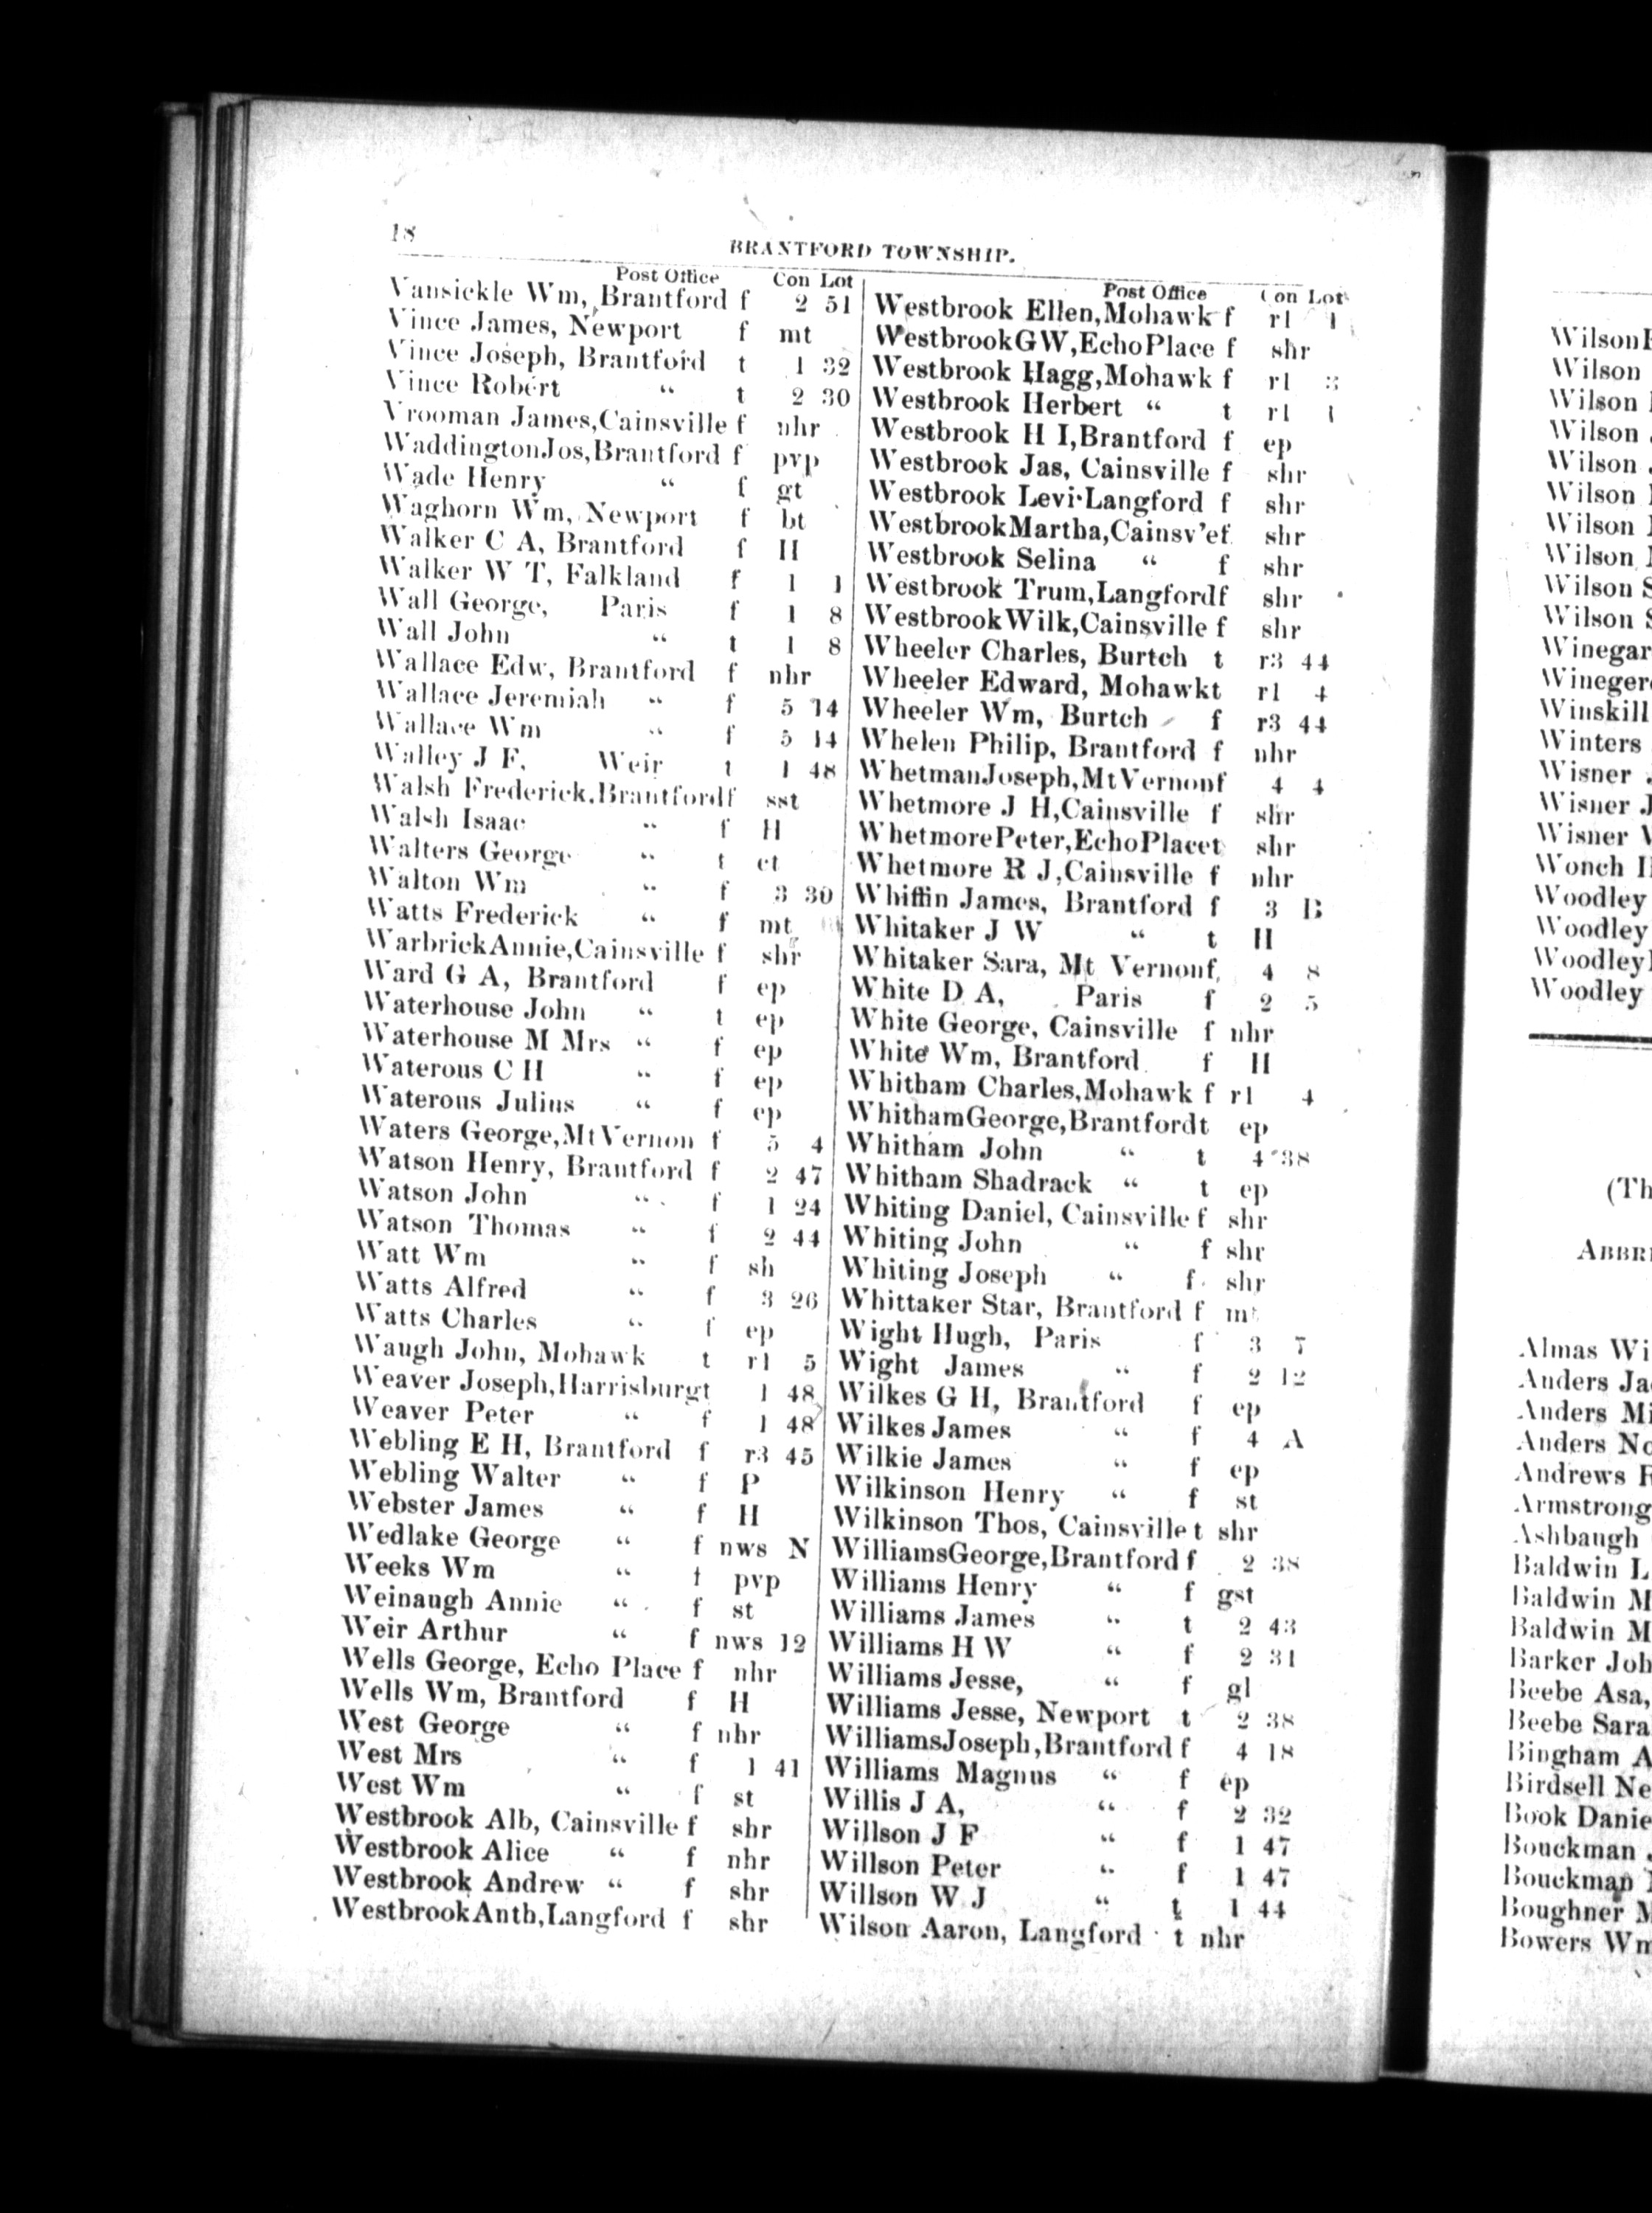 18
BRANTFORD TOWNSHIP.
Post Office Con Lot
Vansickle Wm, Brantford f 2 51
Vince James, Newport f mt
Vince Joseph, Brantford t 1 32
Vince Robert “ t 2 30
Vrooman James,Cainsville f nhr
WaddingtonJos,Brantford f pvp
Wade Henry “ f gt
Waghorn Wm, Newport f bt
Walker C A, Brantford f H
Walker W T, Falkland f 1 1
Wall George, Paris f 1 8
Wall John “ t 1 8
Wallace Edw, Brantford f nhr
Wallace Jeremiah “ f 5 14
Wallace Wm “ f 5 14
Walley J F, Weir t 1 48
Walsh Frederick,Brantfordf sst
Walsh Isaac “ f H
Walters George “ t ct
Walton Wm “ f 3 30
Watts Frederick “ f mt
WarbrickAnnie,Cainsville f shr
Ward G A, Brantford f ep
Waterhouse John “ t ep
Waterhouse M Mrs “ f ep
Waterous C H “ f ep
Waterous Julius “ f ep
Waters George,MtVernon f 5 4
Watson Henry, Brantford f 2 47
Watson John “ f 1 24
Watson Thomas “ f 2 44
Watt Wm “ f sh
Watts Alfred “ f 3 26
Watts Charles “ f ep
Waugh John, Mohawk t r1 5
Weaver Joseph,Harrisburgt 1 48
Weaver Peter “ f 1 48
Webling E H, Brantford f r3 45
Webling Walter “ f P
Webster James “ f H
Wedlake George “ f nws N
Weeks Wm “ t pvp
Weinaugh Annie “ f st
Weir Arthur “ f nws 12
Wells George, Echo Place f nhr
Wells Wm, Brantford f H
West George “ f nhr
West Mrs “ f 1 41
West Wm “ f st
Westbrook Alb, Cainsville f shr
Westbrook Alice “ f nhr
Westbrook Andrew “ f shr
WestbrookAnth,Langford f shr
Post Office Con Lot
Westbrook Ellen,Mohawk f r1 1
WestbrookGW,EchoPlace f shr
Westbrook Hagg,Mohawk f r1 3
Westbrook Herbert “ t r1 1
Westbrook H I,Brantford f ep
Westbrook Jas, Cainsville f shr
Westbrook Levi Langford f shr
WestbrookMartha,Cainsv’ef shr
Westbrook Selina “ f shr
Westbrook Trum,Langfordf shr
WestbrookWilk,Cainsville f shr
Wheeler Charles, Burtch t r3 44
Wheeler Edward, Mohawkt r1 4
Wheeler Wm, Burtch f r3 44
Whelen Philip, Brantford f nhr
WhetmanJoseph,MtVernonf 4 4
Whetmore J H,Cainsville f shr
WhetmorePeter,EchoPlacet shr
Whetmore R J,Cainsville f nhr
Whiffin James, Brantford f 3 B
Whitaker J W “ t H
Whitaker Sara, Mt Vernonf 4 8
White D A, Paris f 2 5
White George, Cainsville f nhr
White Wm, Brantford f H
Whitham Charles,Mohawk f r1 4
WhithamGeorge,Brantfordt ep
Whitham John “ t 4 38
Whitham Shadrack “ t ep
Whiting Daniel, Cainsville f shr
Whiting John “ f shr
Whiting Joseph “ f shr
Whittaker Star, Brantford f mt
Wight Hugh, Paris f 3 7
Wight James “ f 2 12
Wilkes G H, Brantford f ep
Wilkes James “ f 4 A
Wilkie James “ f ep
Wilkinson Henry “ f st
Wilkinson Thos, Cainsville t shr
WilliamsGeorge,Brantford f 2 38
Williams Henry “ f gst
Williams James “ t 2 43
Williams H W “ f 2 31
Williams Jesse, “ f gl
Williams Jesse, Newport t 2 38
WilliamsJoseph,Brantford f 4 18
Williams Magnus “ f ep
Willis J A, “ f 2 32
Willson J F “ f 1 47
Willson Peter “ f 1 47
Willson W J “ t 1 44
Wilson Aaron, Langford t nhr
Wilson
Wilson
Wilson
Wilson
Wilson
Wilson
Wilson
Wilson
Wilson S
Wilson S
Winegar
Wineger
Winskill
Winters
Wisner
Wisner J
Wisner
Wonch
Woodley
Woodley
Woodley
Woodley
(Th
ABBR
Almas Wi
Anders Ja
Anders Mi
Anders No
Andrews
Armstrong
Ashbaugh
Baldwin L
Baldwin M
Baldwin M
Barker Joh
Beebe Asa,
Beebe Sara
Bingham A
Birdsell Ne
Book Danie
Bouckman
Bouckman
Boughner M
Bowers Wm